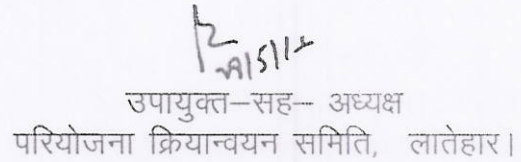 उपायुक्त–सह– अध्यक्ष
परियोजना क्रियान्वयन समिति, लातेहार।